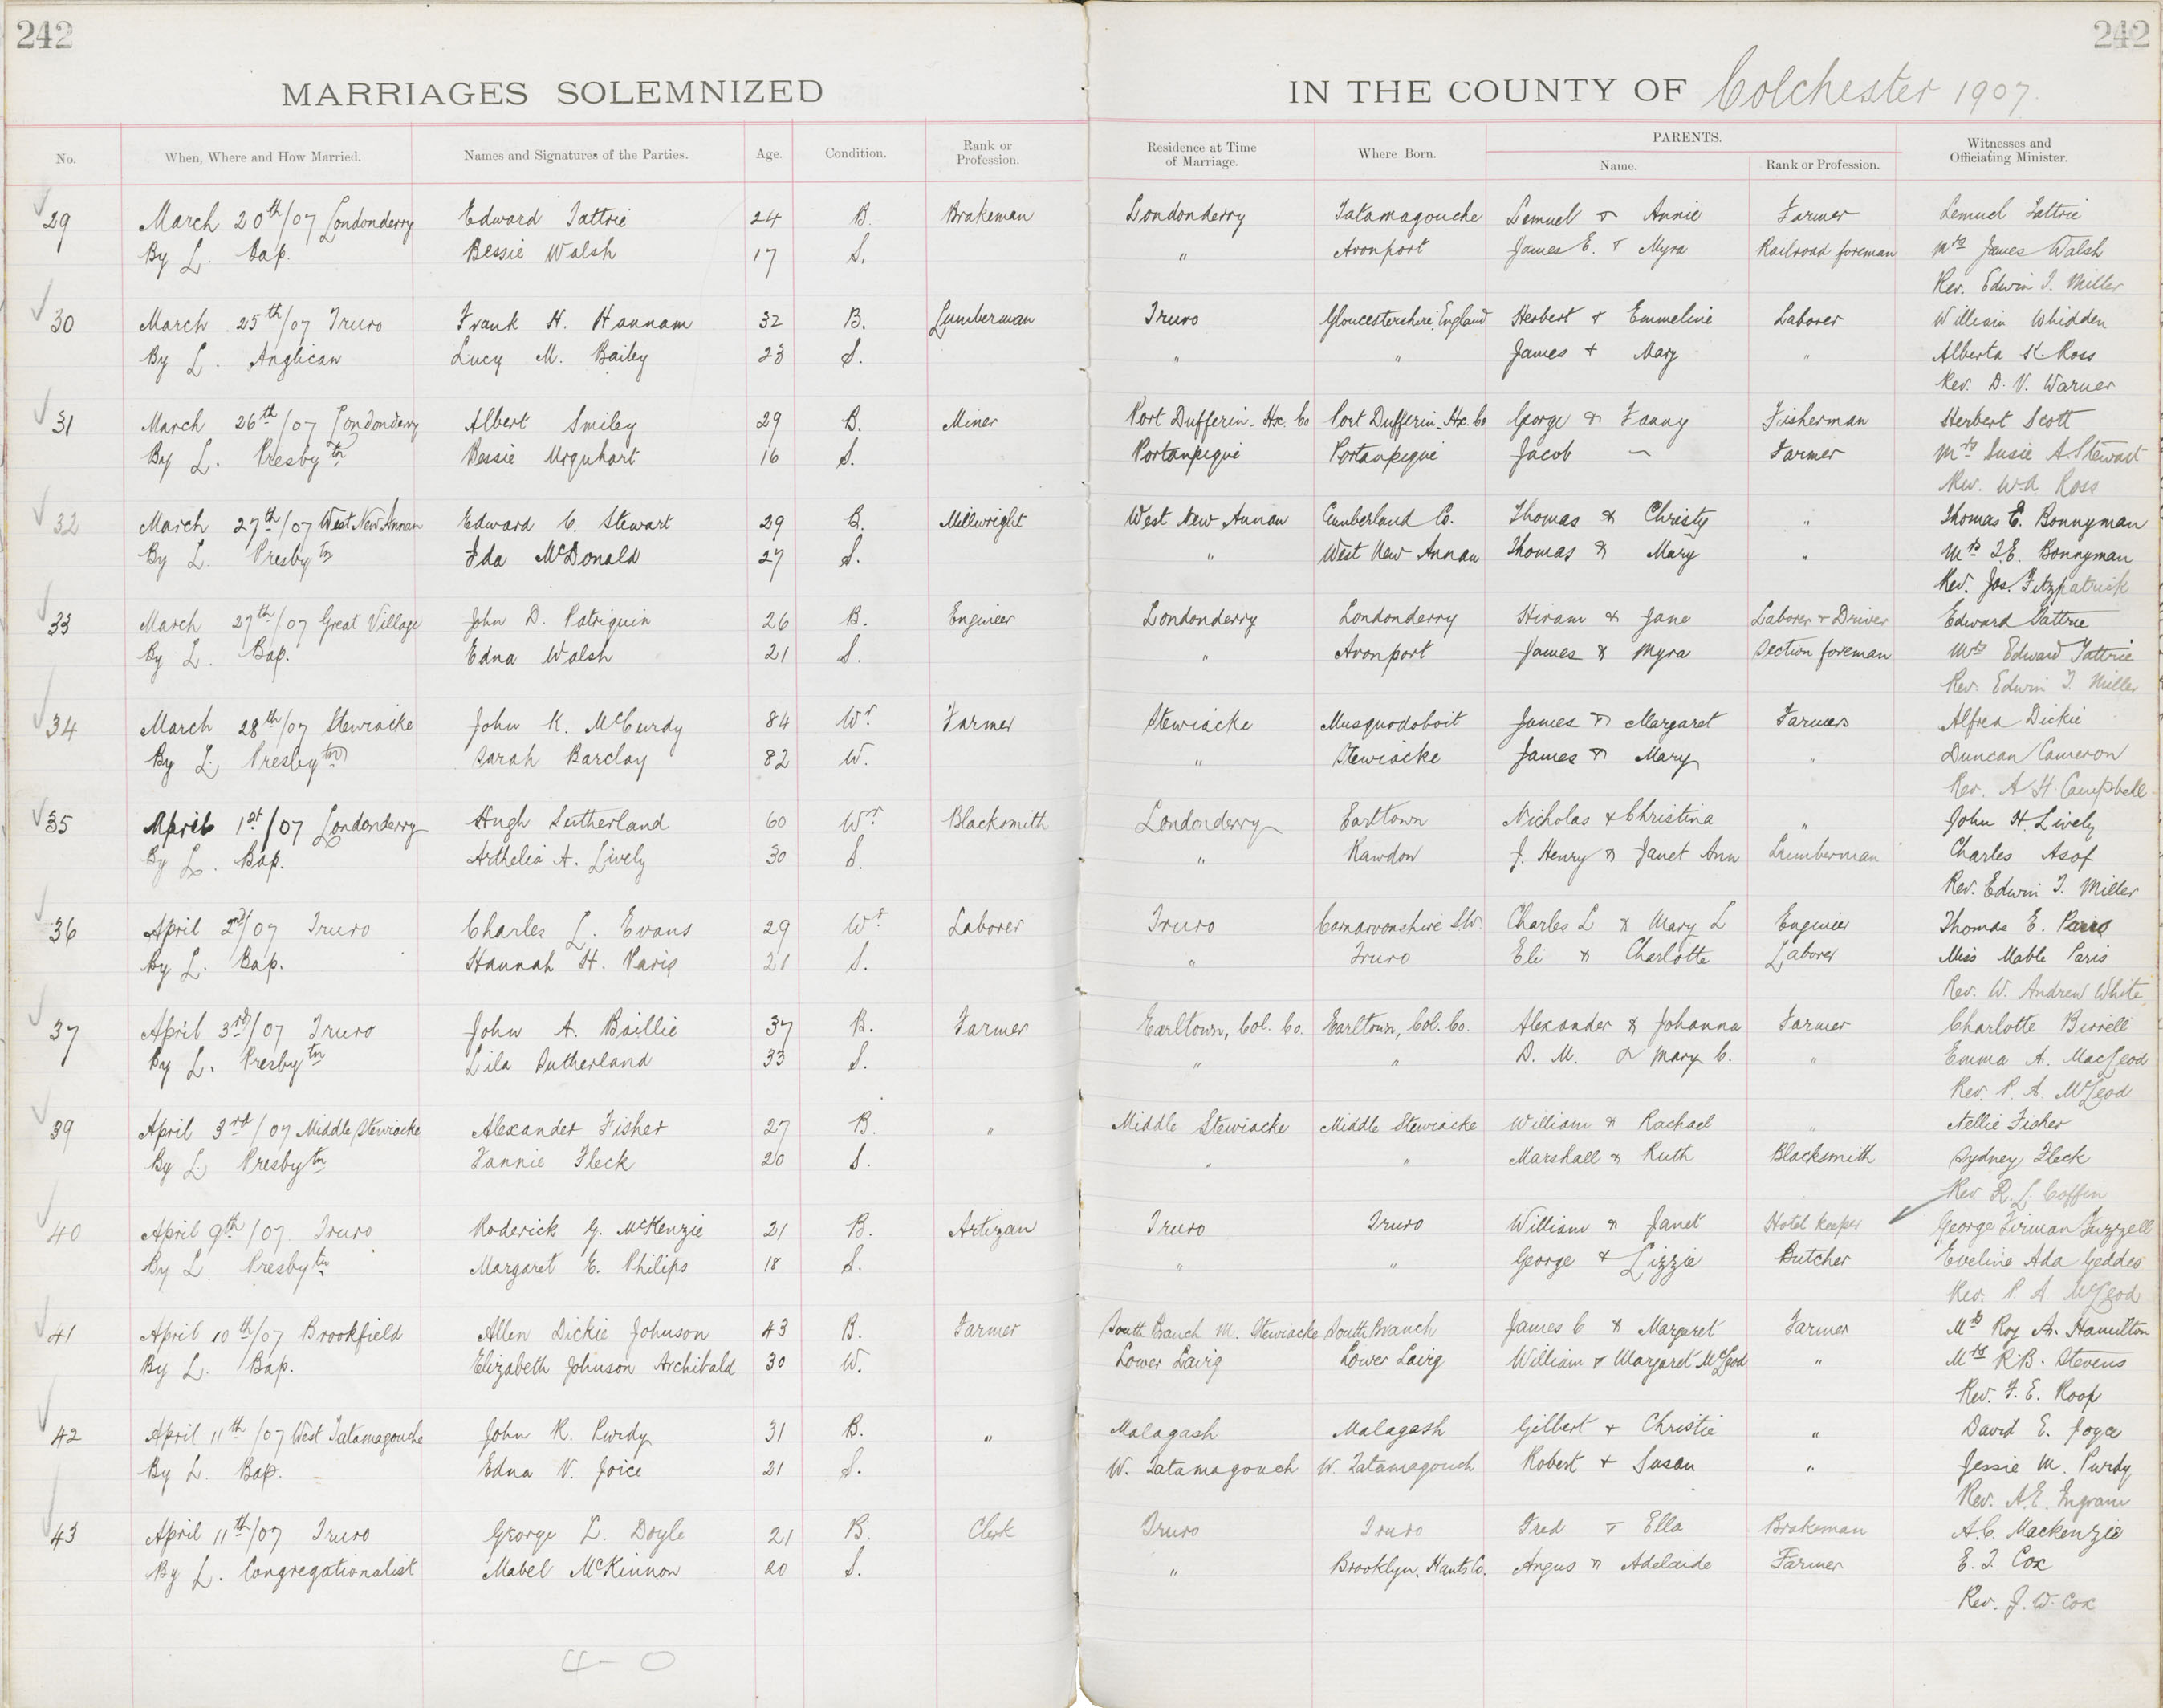 242 242
MARRIAGES SOLEMNIZED IN THE COUNTY OF Colchester 1907.
No. When, Where and How Married. Names and Signatures of the Parties. Age. Condition. Rank or Profession. Residence at Time of Marriage. Where Born. PARENTS. Name. Rank or Profession. Witnesses and Officiating Minister.
29 March 20th/07 Londonderry Edward Tattrie 24 B. Brakeman Londonderry Tatamagouche Lemuel & Annie Farmer Lemuel Tattrie
By L. Bap. Bessie Walsh 17 S. " Avonport James E. & Myra Railroad foreman Mrs James Walsh
Rev. Edwin T. Miller
30 March 25th/07 Truro Frank H. Hannam 32 B. Lumberman Truro Gloucestershire, England Herbert & Emmeline Laborer William Whidden
By L. Anglican Lucy M. Bailey 23 S. " " James & Mary " Alberta K. Ross
Rev. D. V. Warner
31 March 26th/07 Londonderry Albert Smiley 29 B. Miner Port Dufferin - Hx. Co Port Dufferin - Hx. Co George & Fanny Fisherman Herbert Scott
By L. Presbytn Bessie Urquhart 16 S. Portaupique Portaupique Jacob — Farmer Mrs Susie A. Stewart
Rev. W.A. Ross
32 March 27th/07 West New Annan Edward C. Stewart 29 B. Millwright West New Annan Cumberland Co. Thomas & Christy " Thomas E. Bonnyman
By L. Presbytn Ida McDonald 27 S. " West New Annan Thomas & Mary " Mrs T.E. Bonnyman
Rev. Jos. Fitzpatrick
33 March 27th/07 Great Village John D. Patriquin 26 B. Engineer Londonderry Londonderry Hiram & Jane Laborer & Driver Edward Tattrie
By L. Bap. Edna Walsh 21 S. " Avonport James & Myra Section foreman Mrs Edward Tattrie
Rev. Edwin T. Miller
34 March 28th/07 Stewiacke John K. McCurdy 84 Wr. Farmer Stewiacke Musquodoboit James & Margaret Farmers Alfred Dickie
By L. Presbytn Sarah Barclay 82 W. " Stewiacke James & Mary " Duncan Cameron
Rev. A H. Campbell
35 April 1st/07 Londonderry Hugh Sutherland 60 Wr Blacksmith Londonderry Earltown Nicholas & Christina " John H. Lively
By L. Bap. Ardhelia A. Lively 30 S. " Rawdon J. Henry & Janet Ann Lumberman Charles Asof
Rev. Edwin T. Miller
36 April 2nd/07 Truro Charles L. Evans 29 Wr Laborer Truro Carnarvonshire Charles L & Mary L Engineer Thomas E. Paris
By L. Bap. Hannah H. Paris 21 S. " Truro Eli & Charlotte Laborer Miss Mable Paris
Rev. W. Andrew White
37 April 3rd/07 Truro John A. Baillie 37 B. Farmer Earltown, Col. Co. Earltown, Col. Co. Alexander & Johanna Farmer Charlotte Birrell
By L. Presbytn Lila Sutherland 33 S. " " D. M. & Mary C. " Emma A. MacLeod
Rev. P. A. McLeod
39 April 3rd/07 Middle Stewiacke Alexander Fisher 27 B. " Middle Stewiacke Middle Stewiacke William & Rachael " Nellie Fisher
By L. Presbytn Fannie Fleck 20 S. " " Marshall & Ruth Blacksmith Sydney Fleck
Rev. R. L. Coffin
40 April 9th/07 Truro Roderick G. McKenzie 21 B. Artizan Truro Truro William & Janet Hotel keeper George Firman Fuzzell
By L. Presbytn Margaret E. Philips 18 S. " " George & Lizzie Butcher Eveline Ada Geddes
Rev. P. A. McLeod
41 April 10th/07 Brookfield Allen Dickie Johnson 43 B. Farmer South Branch M. Stewiacke South Branch James C & Margaret Farmer Mrs Roy A. Hamilton
By L. Bap. Elizabeth Johnson Archibald 30 W. Lower Lairg Lower Lairg William & Margaret McLeod " Mrs R.B. Stevens
Rev. F. E. Roop
42 April 11th/07 West Tatamagouche John R. Purdy 31 B. " Malagash Malagash Gilbert & Christie " David E. Joyce
By L. Bap. Edna V. Joice 21 S. W. Tatamagouch W. Tatamagouch Robert & Susan " Jessie M. Purdy
Rev. A.E. Ingram
43 April 11th/07 Truro George L. Doyle 21 B. Clerk Truro Truro Fred & Ella Brakeman A.C. Mackenzie
By L. Congregationalist Mabel McKinnon 20 S. " Brooklyn, Hants Co. Angus & Adelaide Farmer E. T. Cox
Rev. J. W. Cox
4 - 0